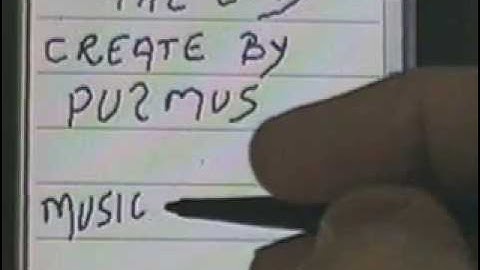 CREATE BY
PUSMUS
MUSIC